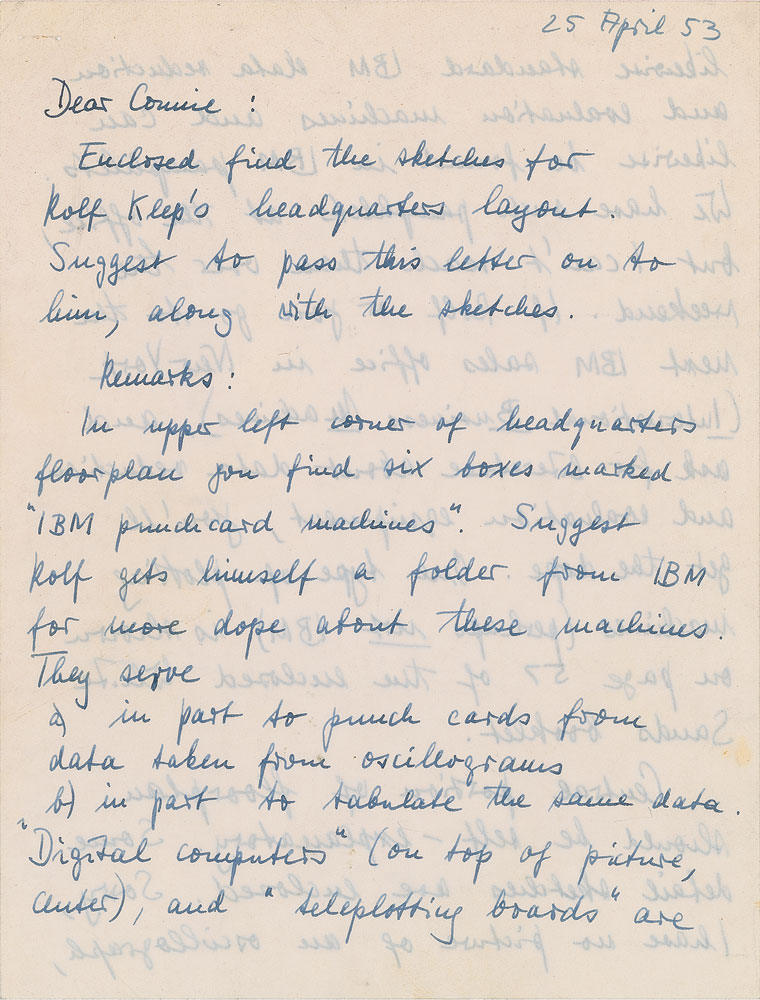 25 April 53
Dear Connie :
Enclosed find the sketches for
Rolf Klep's headquarters layout.
Suggest to pass this letter on to
him, along with the sketches.
Remarks :
In upper left corner of headquarters
floorplan you find six boxes marked
"IBM punchcard machines". Suggest
Rolf gets himself a folder from IBM
for more dope about these machines.
They serve
a) in part to punch cards from
data taken from oscillograms
b) in part to tabulate the same data.
"Digital computers" (on top of picture,
center), and "teleplotting boards" are